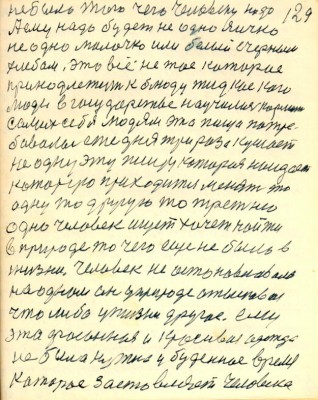 не было этого чего человеку надо 129
Ему надо будет не одно яичко
не одно молочко или белый с черным
хлебом, это всё не тое которое
принадлежит к блюду жидкое Кого
Люди в государстве научились кормить
самих себя людям эта пища потре-
бовалась ежедня три раза кушает
не одну эту пищу которая находит
которую приходится менять то
одну то другую то третию
одно человек ищет хочет найти
в природе то чего еще не было в
жизни человек не остановился
на одном он у природе отыскивал
что либо у жизни другое ему
эта фасонная и красивая одежда
не была нужна у буденное время
Которое заставляет человека